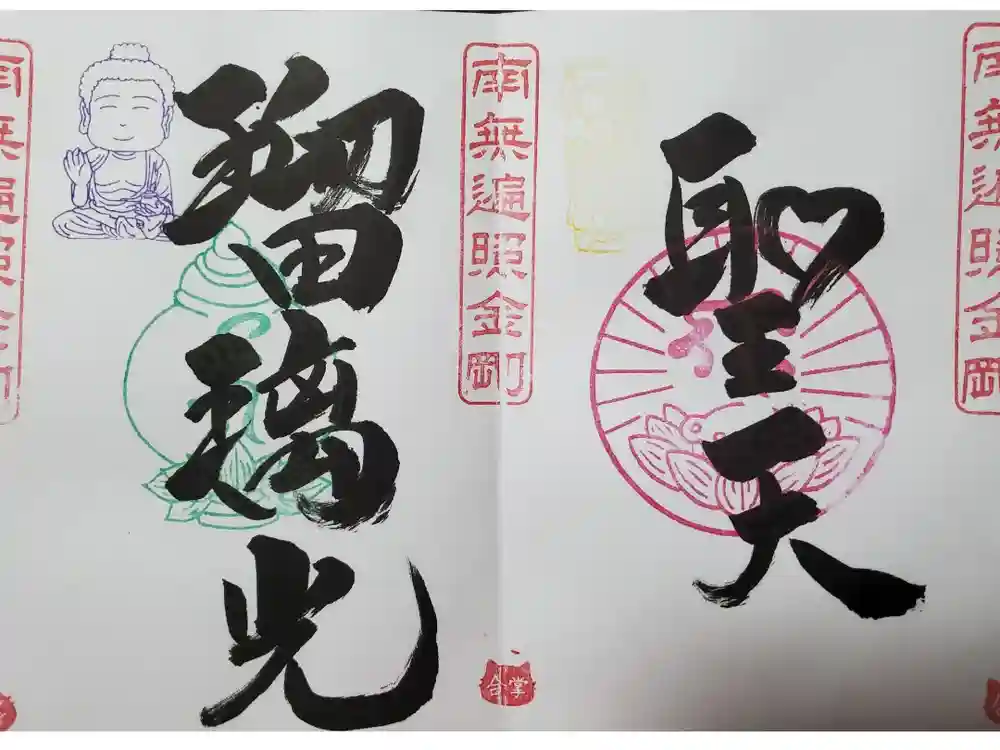 南無遍照金剛
聖天
南無遍照金剛
瑠璃光
合掌
南無遍照金剛